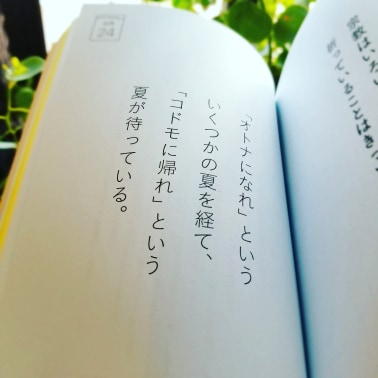 24
「オトナになれ」という
いくつかの夏を経て、
「コドモに帰れ」という
夏が待っている。
宗教はいろい
祈っていることはき